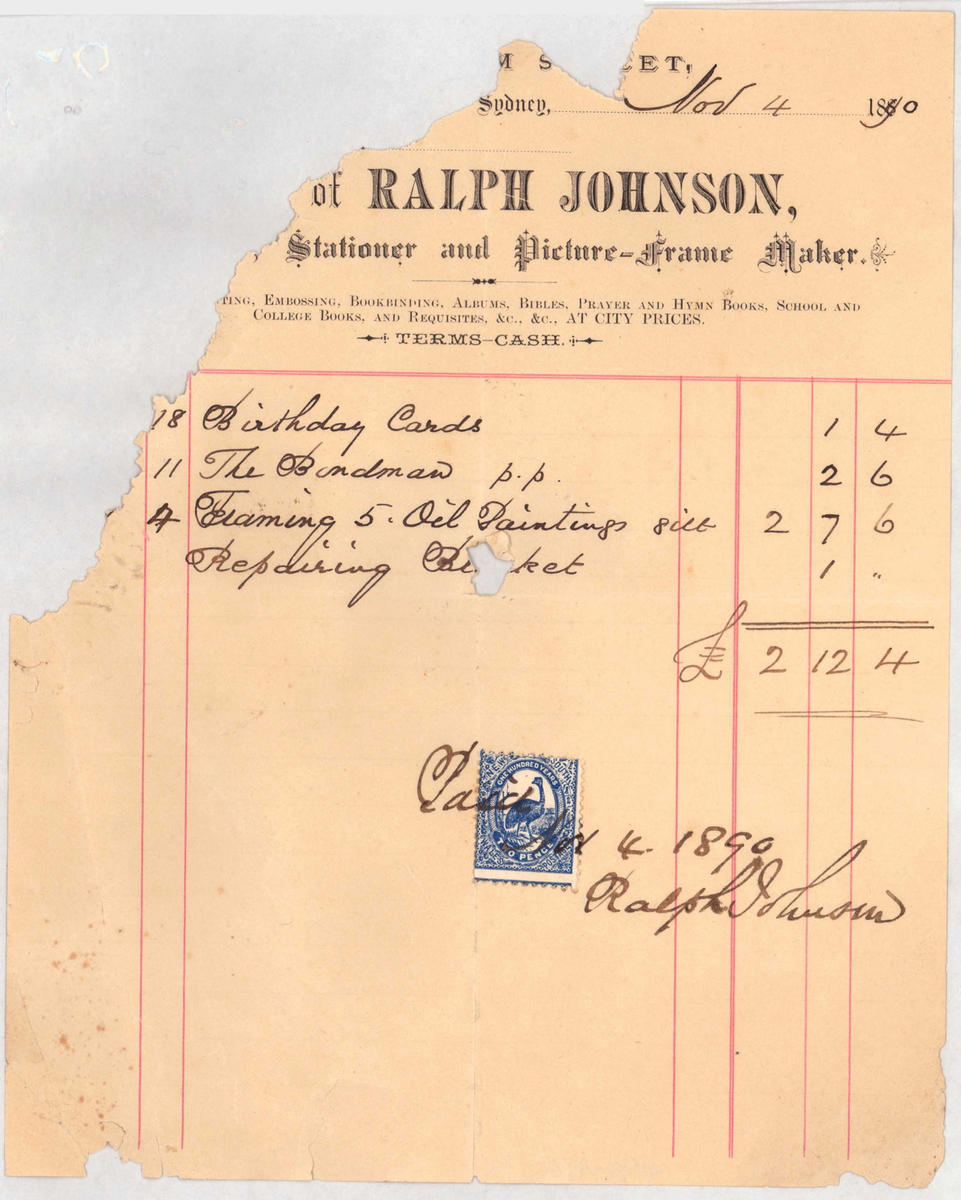 M S EET,
Sydney, Nov 4 1890
of RALPH JOHNSON,
Stationer and Picture-Frame Maker.
TING, EMBOSSING, BOOKBINDING, ALBUMS, BIBLES, PRAYER AND HYMN BOOKS, SCHOOL AND
COLLEGE BOOKS, AND REQUISITES, &C., &C., AT CITY PRICES.
TERMS-CASH.
18 Birthday Cards 1 4
11 The Bondman p.p. 2 6
4 Framing 5 Oil Paintings gilt 2 7 6
Repairing B ket 1 "
£ 2 12 4
Paid
ONE HUNDRED YEARS
TWO PENCE
Nov 4. 1890
Ralph Johnson